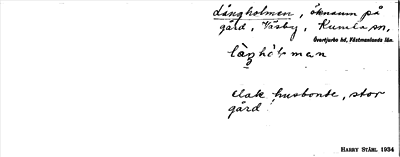 Långholmen, öknamn på
gård, Väsby, Kumla sn,
Övertjurbo hd, Västmanlands län.
elak husbonde, stor
gård
HARRY STÅHL 1934